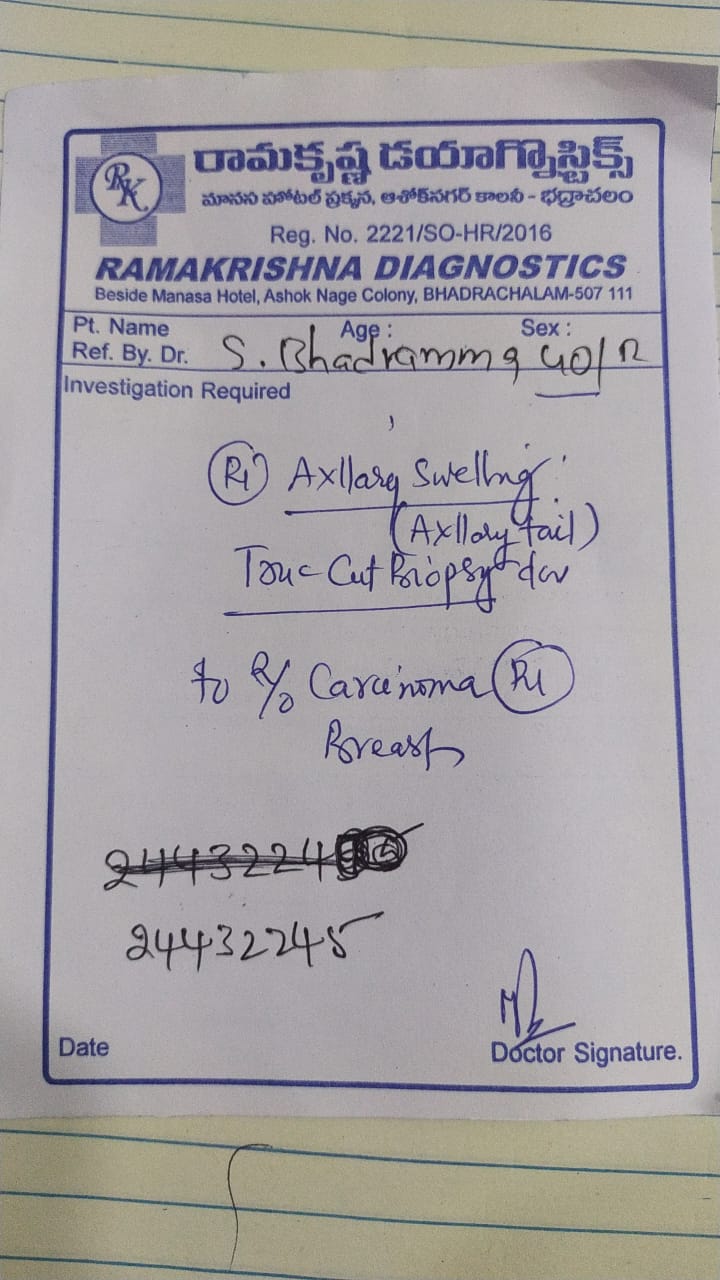 RK
రామకృష్ణ డయాగ్నొస్టిక్స్
మానస హోటల్ ప్రక్కన, ఆశోక్‌నగర్ కాలనీ - భద్రాచలం
Reg. No. 2221/SO-HR/2016
RAMAKRISHNA DIAGNOSTICS
Beside Manasa Hotel, Ashok Nage Colony, BHADRACHALAM-507 111
Pt. Name Age : Sex :
Ref. By. Dr. S. Bhadramma 40/
Investigation Required
Rt Axllary Swelling
(Axllary tail)
Cut Biopsy
to R/o Carcinoma Rt
Breast
24432245
Date
Doctor Signature.